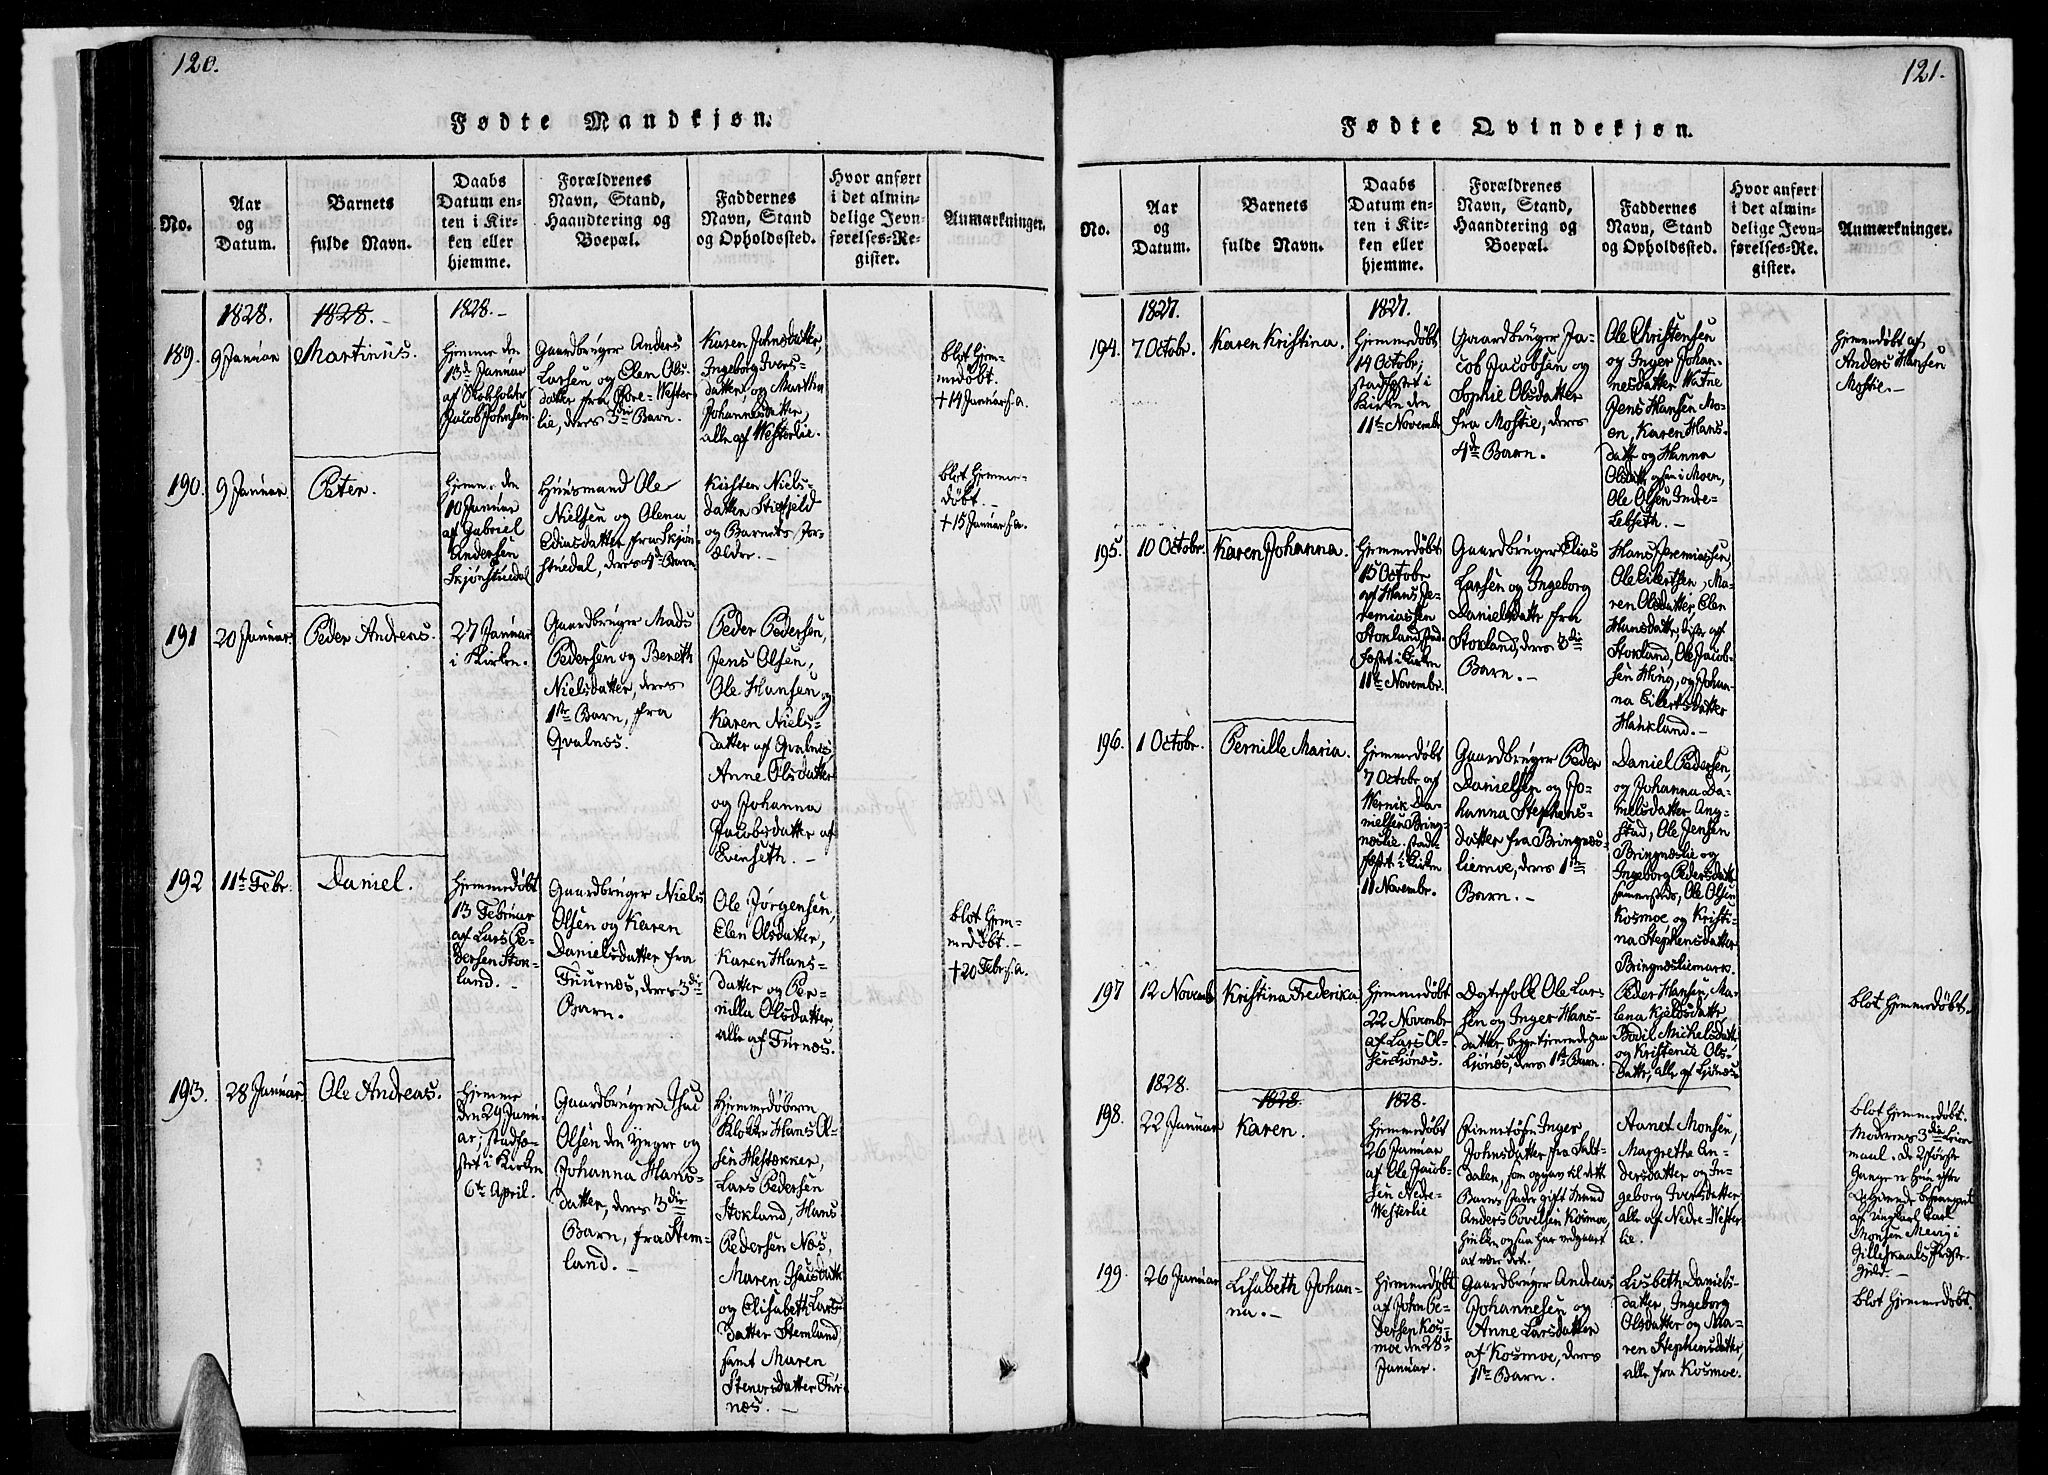 120.
Fødte Mandkjøn.
No.
Aar
og
Datum.
Barnets
fulde Navn.
Daabs
Datum en-
ten i Kir-
ken eller
hjemme.
Forældrenes
Navn, Stand,
Haandtering og
Boepæl.
Faddernes
Navn, Stand
og Opholdssted.
Hvor anført
i det almin-
delige Jevn-
førelses-Re-
gister.
Anmærkninger.
1828.
1828.
1828.
189.
9 Januar
Martinus.
Hjemme den
13d Januar
af Skoleholder
Jacob Johnsen
Gaardbruger Anders
Larsen og Elen Ols-
datter fra Øvre-Wester-
lie, deres 3die Barn.
Karen Johnsdatter,
Ingeborg Ivers-
datter, og Martha
Johannesdatter,
alle af Westerlie.
blot Hjem-
medøbt.
† 14 Januar s. a.
190.
9 Januar
Peter.
Hjem. den
10 Januar
af Gabriel
Andersen
Skjønstuedal
Huusmand Ole
Nielsen og Olena
Ediasdatter fra Skjøn-
stuedal, deres 4de Barn
Kirsten Niels-
datter Stierfjeld
og Barnets For-
ældre.
blot Hjemme-
døbt.
† 15 Januar s. a.
191
20 Januar
Peder Andreas.
27 Januar
i Kirken.
Gaardbruger Mads
Pedersen og Bereth
Nielsdatter, deres
1ste Barn, fra
Qvalnæs.
Peder Pedersen,
Jens Olsen,
Ole Hansen og
Karen Niels-
datter af Qvalnæs,
Anne Olsdatter
og Johanna
Jacobsdatter af
Evenseth.
192
11te Febr.
Daniel.
Hjemmedøbt
13 Februar
af Lars Pe-
dersen Stok-
land.
Gaardbruger Niels
Olsen og Karen
Danielsdatter fra
Fuurnæs, deres 3die
Barn.
Ole Jørgensen,
Elen Olsdatter,
Karen Hans-
datter og Per-
nilla Olsdatter,
alle af Furnæs.
blot Hjem-
medøbt.
† 20 Febr. s. a.
193.
28 Januar
Ole Andreas.
Hjemme
den 29 Janu-
ar, stadfæ-
stet i Kirken
6te April.
Gaardbruger Isac
Olsen den yngre og
Johanna Hans-
datter, deres 3die
Barn, fra Stem-
land.
Hjemmedøberen
Klokker Hans Ol-
sen Hestækker,
Lars Pedersen
Stokland, Hans
Pedersen Næs,
Maren Isacsdatt.
og Elisabeth Lars-
datter Stemland,
samt Maren
Stenersdatter Fur-
næs.
121.
Fødte Qvindekjøn.
No.
Aar
og
Datum.
Barnets
fulde Navn.
Daabs
Datum en-
ten i Kir-
ken eller
hjemme.
Forældrenes
Navn, Stand,
Haandtering og
Boepæl.
Faddernes
Navn, Stand
og Opholdssted.
Hvor anført
i det almin-
delige Jevn-
førelses-Re-
gister.
Anmærkninger.
1827.
1827.
194.
7 Octobr.
Karen Kristina.
Hjemmedøbt
14 Octobr,
stadfæstet i
Kirke den
11te Novembr
Gaardbruger Ja-
cob Jacobsen og
Sophie Olsdatter
fra Mostie, deres
4de Barn.
Ole Christensen
og Inger Johan-
nesdatter Watne
Jens Hansen Mo-
en, Karen Hans-
datt og Hanna
Olsdatt, ogsaa i Moen,
Ole Olsen Indre-
Lebseth.
Hjemmedøbt af
Anders Hansen
Mostie.
195.
10 Octobr.
Karen Johanna.
Hjemmedøbt
15 Octobr
af Hans Je-
remiassen
Stokland, stad-
fæstet i Kirken
11te Novembr.
Gaardbruger Elias
Larsen og Ingeborg
Danielsdatter fra
Stokland, deres 3die
Barn.
Hans Jeremiassen,
Ole Eilertsen, Ma-
ren Olsdatter, Elen
Hansdatter, disse af
Stokland, Ole Jacob-
sen Høng, og Johan-
na Eilertsdatter
Hankland.
196.
1 Octobr.
Pernille Maria.
Hjemmedøbt
7 Octobr af
Wernik Da-
nielsen Bring-
næslie, stad-
fæstet i Kirken
11 Novembr.
Gaardbruger Peder
Danielsen og Jo-
hanna Stephens-
datter fra Bringnæs-
liemoe, deres 1ste
Barn.
Daniel Pedersen,
og Johanna Da-
nielsdatter Ang-
stad, Ole Jensen
Bringnæslie og
Ingeborg Pedersdatt
sammesteds, Ole Olsen
Kosmoe og Kristi-
na Stephensdatter
Bringnæsliemark.
197
12 Novembr
Kristina Frederika
Hjemmedøbt
22 Novembr
af Lars Ol-
sen Ljønæs.
Ole Lar-
sen og Inger Hans-
datter, begge tienende paa
Ljønæs, deres 1ste Barn.
Peder Hansen, Ma-
lena Kjeldsdatte,
Bodil Mickelsdatt
og Kristense Ols-
datt, alle af Ljønæs.
blot Hjemmedøbt.
1828.
1828.
1828.
198.
22 Januar
Karen.
Hjemmedøbt
26 Januar
af Ole Jacob-
sen Nedre-
Westerlie
Finnetøsen Inger
Johnsdatter fra Salt-
dalen, som opgav til dette
Barns Fader gift Mand
Anders Povelsen Kosmoe,
hvilken ogsaa har vedgaaet
at være det.
Aanet Monsen,
Margrethe An-
dersdatter og In-
geborg Iversdatter,
alle af Nedre-Wester-
lie.
blot Hjemmedøbt.
Moderens 3die Leier-
maal. De 2 første
Gange er hun efter
besvangret
af Ungkarl Lars
Monsen Mevig i
Gilleskaals Præste-
gield.
199.
26 Januar
Lisabeth Johan-
na.
Hjemmedøbt
af John Pe-
dersen Kos-
moe den 28de
Januar.
Gaardbruger Andreas
Johannesen og
Anne Larsdatter
af Kosmoe, deres
1ste Barn.
Lisbeth Daniels-
datter, Ingeborg
Olsdatter og Ma-
ren Stephensdatter,
alle fra Kosmoe.
blot Hjemmedøbt.